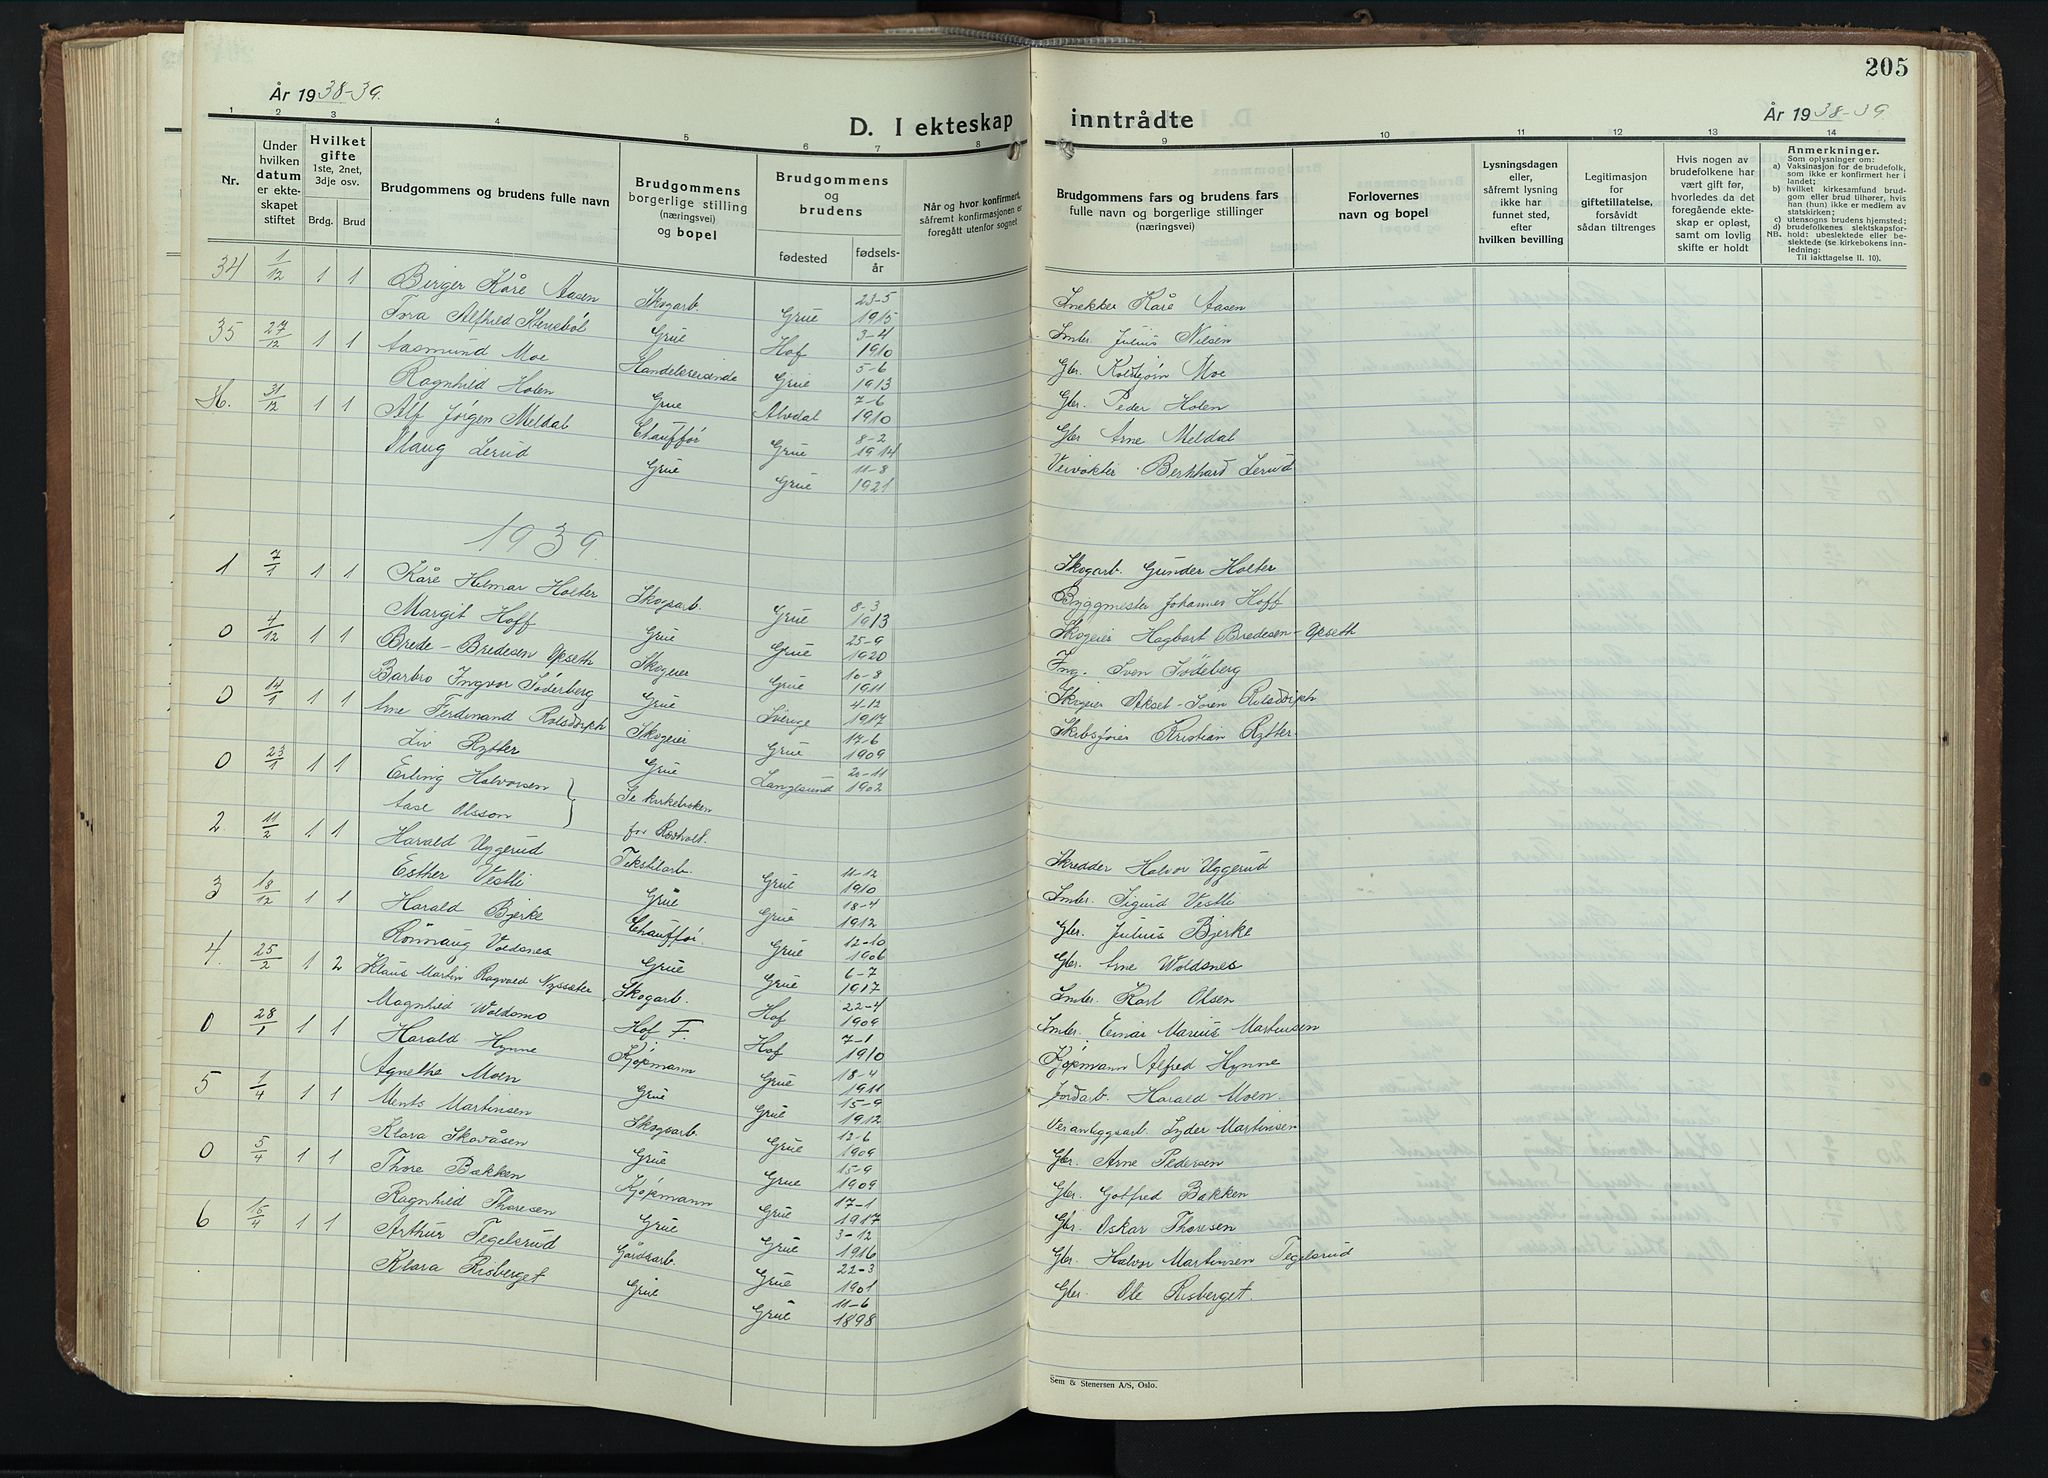 205
År 1938-39.
År 1938-39
D. I ekteskap inntrådte
1 2 3 4 5 6 7 8 9 10 11 12 13 14
Nr.
Under hvilken datum er ekteskapet stiftet
Hvilket gifte
1ste, 2net, 3dje osv.
Brdg. Brud
Brudgommens og brudens fulle navn
Brudgommens borgerlige stilling (næringsvei) og bopel
Brudgommens og brudens
fødested
fødselsår
Når og hvor konfirmert, såfremt konfirmasjonen er foregått utenfor sognet
Brudgommens fars og brudens fars
fulle navn og borgerlige stillinger
(næringsvei)
Forlovernes navn og bopel
Lysningsdagen eller, såfremt lysning ikke har funnet sted, efter hvilken bevilling
Legitimasjon for giftetillatelse, forsåvidt sådan tiltrenges
Hvis nogen av brudefolkene har vært gift før, hvorledes da det foregående ekteskap er opløst, samt om lovlig skifte er holdt
Anmerkninger.
Som oplysninger om:
a) Vaksinasjon for de brudefolk, som ikke er konfirmert her i landet;
b) hvilket kirkesamfund brudgom eller brud tilhører, hvis han (hun) ikke er medlem av statskirken;
c) utensogns brudens hjemsted;
d) brudefolkenes slektskapsforhold: ubeslektede eller beslektede (se kirkebokens innledning:
NB. Til iakttagelse II. 10).
34 1/12 1 1 Birger Kåre Aasen Skogarb. Grue 23-5 1915 Snekker Kåre Aasen
Tora Alfhild Stenebøl Grue Hof 3-4 1910 Smbr. Julius Nilsen
35 27/12 1 1 Aasmund Moe Handelsreisende Grue 5-6 1913 Gbr. Kolbjørn Moe
Ragnhild Holen Grue Alvdal 7-6 1910 Gbr. Peder Holen
36. 31/12 1 1 Alf Jørgen Meldal Chauffør Grue 8-2 1914 Gbr Arne Meldal
Olaug Lerud Grue Grue 11-8 1921 Veivokter Bernhard Lerud
1939
1 7/1 1 1 Kåre Hilmar Holter Skogsarb. Grue 8-3 1913 Skogarb. Gunder Holter
Margit Hoff Grue Grue 25-9 1920 Byggmester Johannes Hoff
0 4/12 1 1 Brede-Bredesen Opseth Skogeier Grue 10-8 1911 Skogeier Hagbart Bredesen-Opseth
Barbro Ingvor Söderberg Grue Sverige 4-12 1917 Ing. Sven Södeberg
0 14/1 1 1 Arne Ferdinand Rolsdorph Skogeier Grue 17-6 1909 Skogeier Aksel-Soren Rolsdorph
Liv Rytter Grue Langesund 20-11 1902 Skibsfører Kristian Rytter.
0 23/1 1 1 Erling Halvorsen Se kirkeboken
Aase Olsson for Rotvolt.
2. 11/2 1 1 Harald Uggerud Tekstilarb. Grue 11-12 1910 Skredder Halvor Uggerud
Esther Vestli Grue Grue 18-4 1912 Smbr. Sigurd Vestli
3 18/12 1 1 Harald Bjerke Chauffør. Grue 12-10 1906 Gbr. Julius Bjerke
Rönnaug Voldsnes Grue Grue 6-7 1917 Gbr. Arne Woldsnes
4. 25/2 1 2 Klaus Martin Ragvald Nyssæter Skogarb. Hof 22-4 1909 Smbr. Karl Olsen
Magnhild Woldsmo Hof F. Hof 7-1 1910 Smbr. Einar Marius Martinsen
0 28/1 1 1 Harald Hynne Kjøpmann Grue 18-4 1911 Kjøpmann Alfred Hynne
Agnethe Moen Grue Grue 15-9 1912 Jordarb. Harald Moen.
5 1/4 1 1 Ments Martinsen Skogsarb. Grue 12-6 1909 Veranleggsarb. Lyder Martinsen
Klara Skovåsen Grue Grue 15-9 1909 Gbr. Arne Pedersen
0 5/4 1 1 Thore Bakken Kjøpmann Grue 17-1 1917 Gbr. Gotfred Bakken
Ragnhild Thoresen Grue Grue 3-12 1916 Gbr. Oskar Thoresen
6 15/4 1 1 Arthur Tegelsrud Gårdsarb. Grue 22-3 1901 Gbr. Halvor Martinsen Tegelsrud
Klara Risberget Grue Grue 11-6 1898 Gbr. Ole Risberget.
Sem & Stenersen A/S, Oslo.